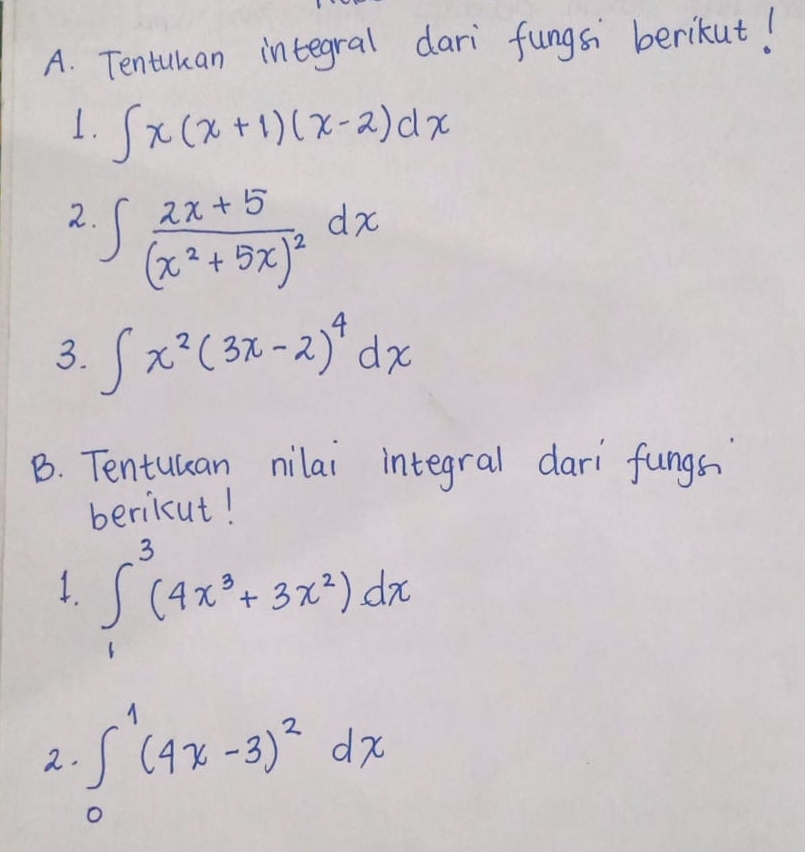 A. Tentukan integral dari fungsi berikut!
1. ∫ x(x+1)(x-2)dx
2. ∫ (2x+5)/(x²+5x)² dx
3. ∫ x²(3x-2)⁴ dx
B. Tentukan nilai integral dari fungsi
berikut!
1. ∫₁³ (4x³+3x²) dx
2. ∫₀¹ (4x-3)² dx